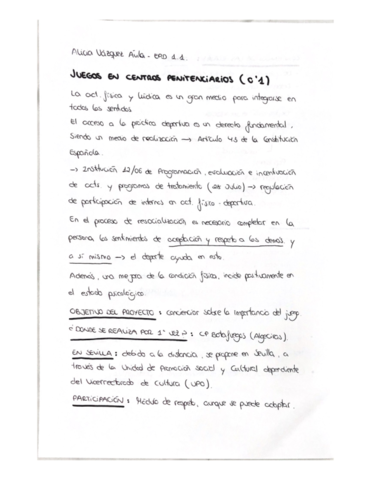 Alicia Vázquez Ávila - EPD 1.1.
JUEGOS EN CENTROS PENITENCIARIOS (0'1)
La act. física y lúdica es un gran medio para integrarse en
todos los sentidos.
El acceso a la práctica deportiva es un derecho fundamental.
Siendo un medio de realización → Artículo 43 de la Constitución
Española.
→ Institución 12/06 de Programación, evaluación e incentivación
de acts y programas de tratamiento (28 Julio) → regulación
de participación de internos en act. físico-deportiva.
En el proceso de resocialización es necesario completar en la
persona los sentimientos de aceptación y respeto a los demás y
a sí mismo → el deporte ayuda en esto.
Además, una mejora de la condición física, incide positivamente en
el estado psicológico.
OBJETIVO DEL PROYECTO: concienciar sobre la importancia del juego
¿DONDE SE REALIZA POR 1ª VEZ?: CP Botafuegos (Algeciras).
EN SEVILLA: debido a la distancia, se propone en Sevilla, a
través de la Unidad de Promoción Social y Cultural dependiente
del Vicerrectorado de Cultura (UPO).
PARTICIPACIÓN: Módulo de respeto, aunque se puede adaptar.